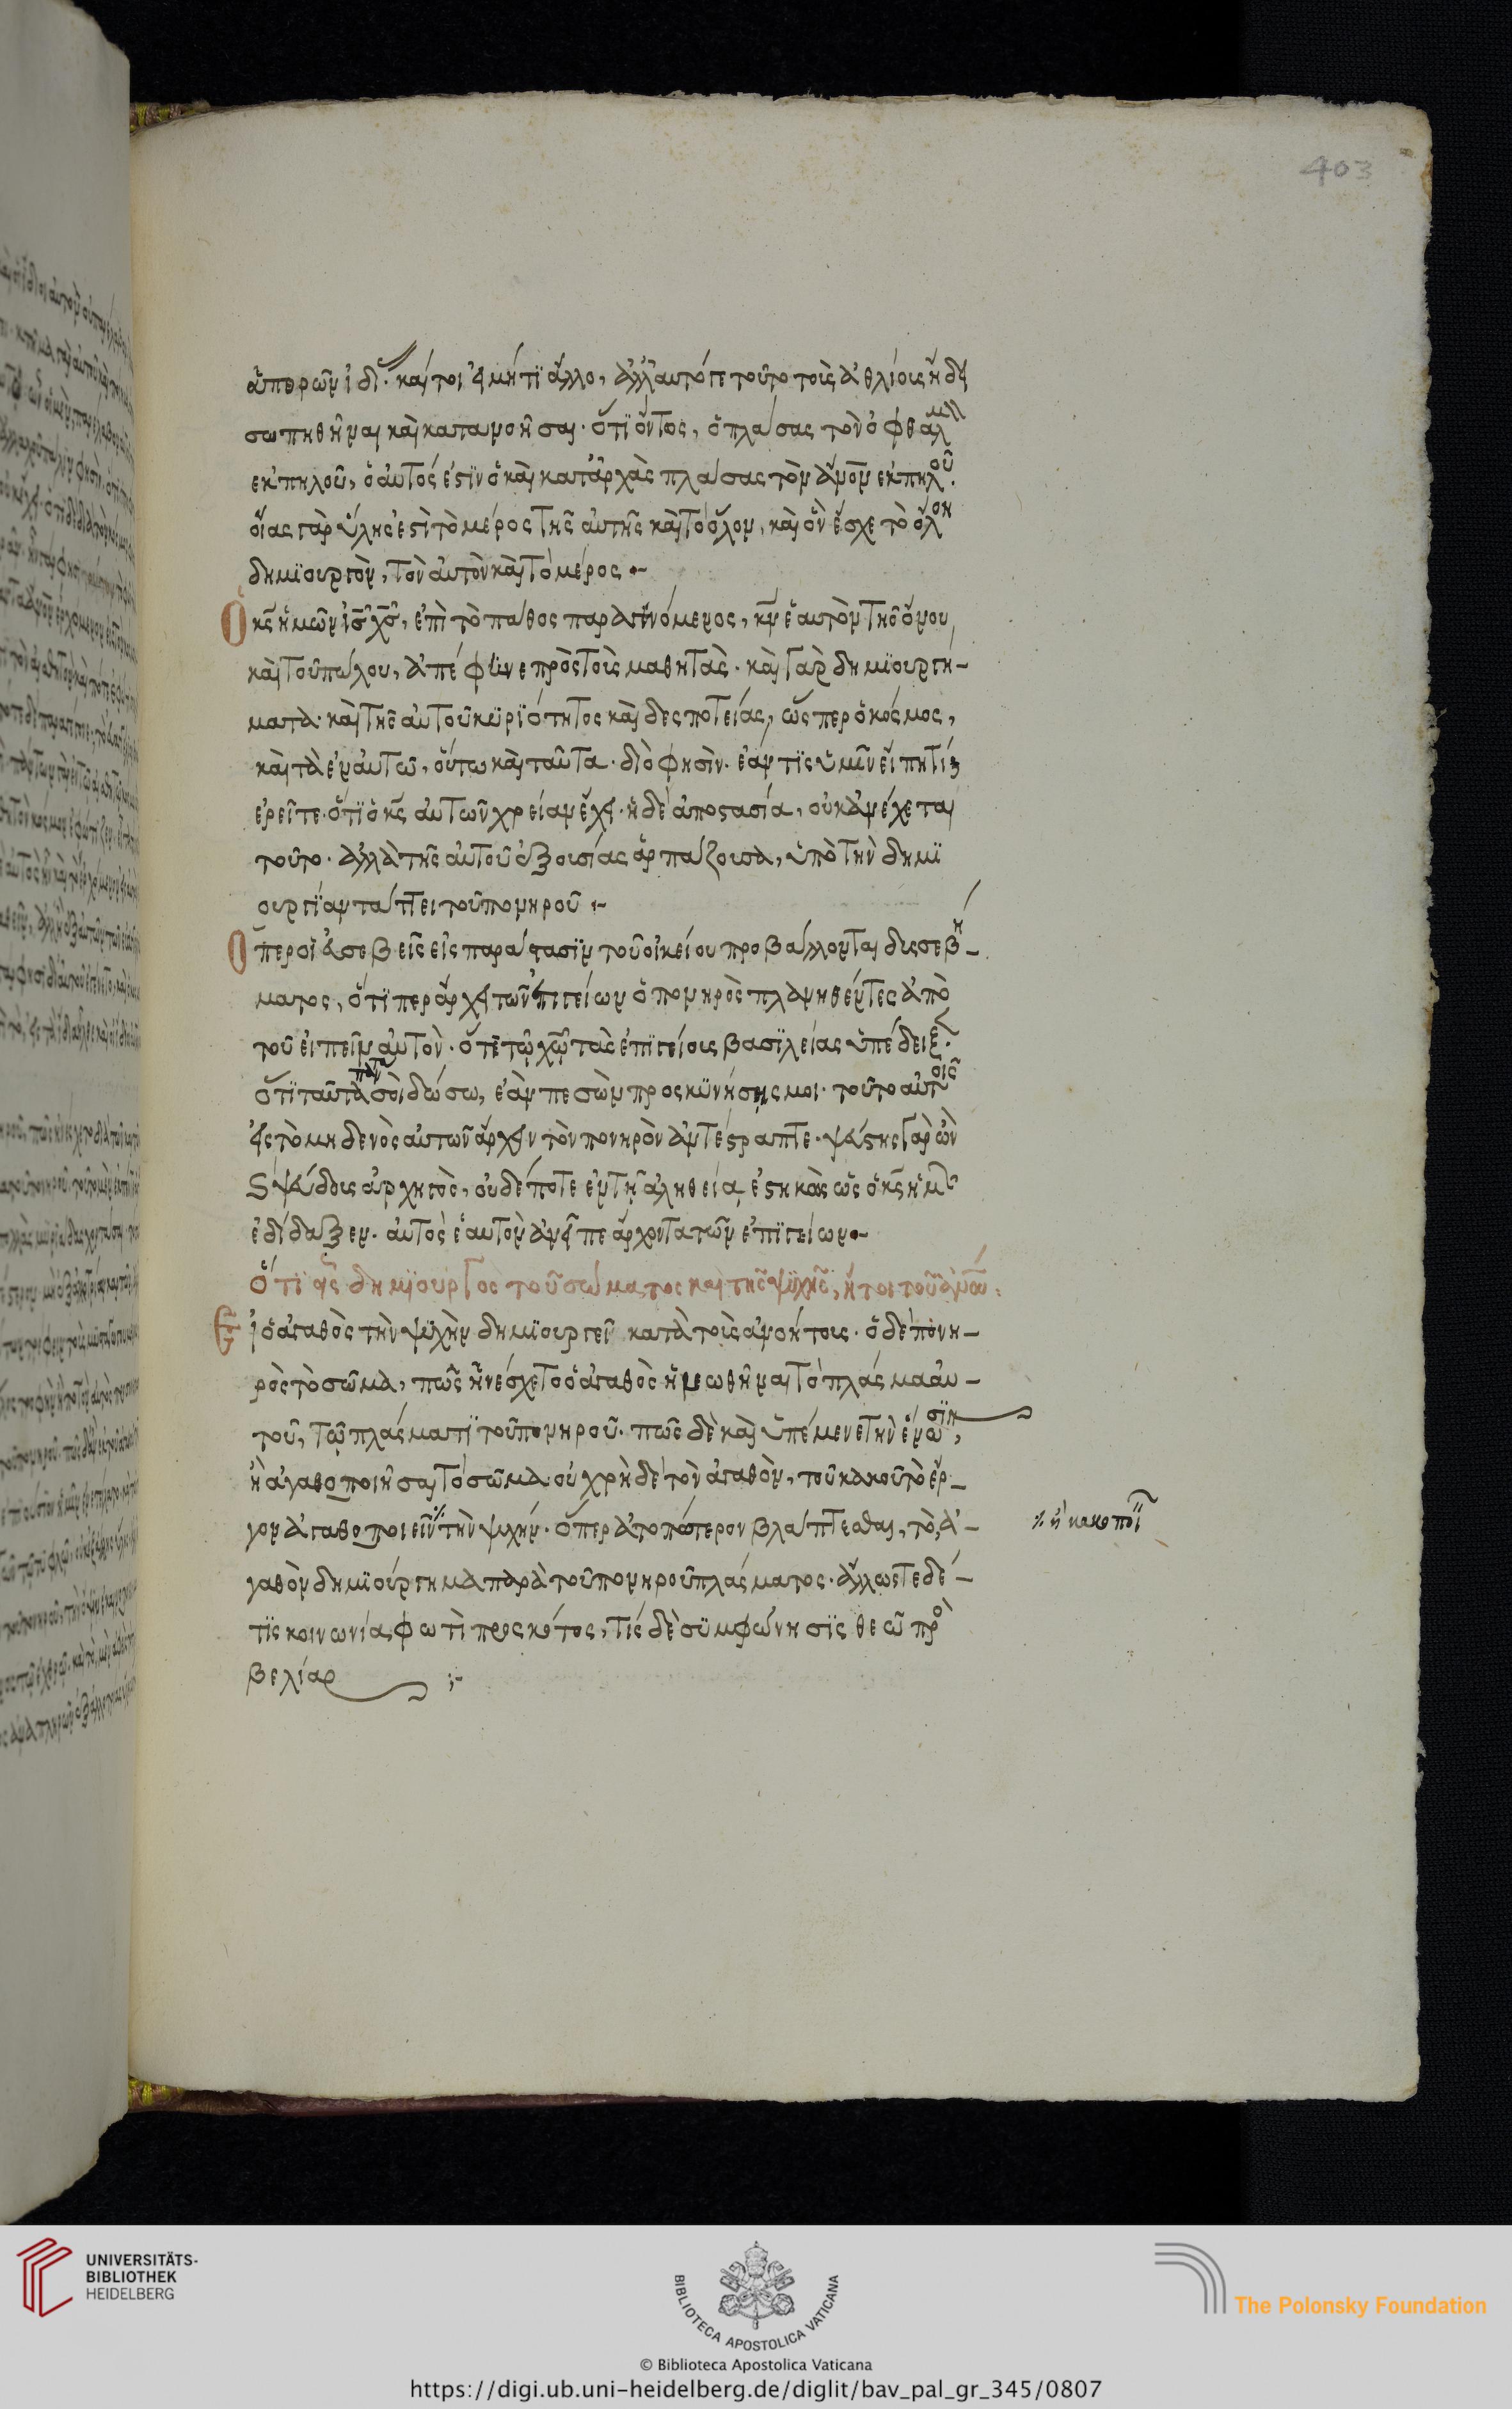 403
ἅπερ ὢν ἴδῃ. καίτοι εἰ μή τι ἄλλο, ἀλλ' αὐτό γε τοῦτο τοῖς ἀθλίοις ἤδει
σωπηθῆναι καὶ κατανοῆσαι. ὅτι ὄντως, ὁ πλάσας τὸν ὀφθαλμὸν
ἐκ πηλοῦ, ὁ αὐτός ἐστιν ὁ καὶ κατ' ἀρχὰς πλάσας τὸν ἄνον ἐκ πηλοῦ.
οἵας γὰρ ὕλης ἐστὶ τὸ μέρος τῆς αὐτῆς καὶ τὸ ὅλον, καὶ ὃν ἔσχε τὸ ὅλον
δημιουργὸν, τὸν αὐτὸν καὶ τὸ μέρος.
Ὁ κς ἡμῶν ις χς, ἐπὶ τὸ πάθος παραγινόμενος, κν ἑαυτὸν τῆς ὄνου
καὶ τοῦ πώλου, ἀπέφηνε πρὸς τοὺς μαθητὰς. καὶ γὰρ δημιουργή-
ματα καὶ τῆς αὐτοῦ κυριότητος καὶ δεσποτείας, ὥσπερ ὁ κόσμος,
καὶ τὰ ἐν αὐτῷ, οὕτω καὶ ταῦτα. διὸ φησὶν. ἐάν τις ὑμῖν εἴπῃ τί,
ἐρεῖτε. ὅτι ὁ κς αὐτῶν χρείαν ἔχει. ἡ δὲ ἀποστασία, οὐκ ἀνέχεται
τοῦτο. ἀλλὰ τῆς αὐτοῦ ἐξουσίας ἁρπάζουσα, ὑπὸ τὴν δημι
ουργίαν τάττει τοῦ πονηροῦ
Ὅπερ οἱ ἀσεβεῖς εἰς παράστασιν τοῦ οἰκείου προβάλλονται δυσσεβή-
ματος, ὅτι περ ἄρχει τῶν ἐπιγείων ὁ πονηρὸς πλανηθέντες ἀπὸ
τοῦ εἰπεῖν αὐτὸν. ὅτε τῷ χῷ τὰς ἐπιγείους βασιλείας ὑπέδειξε.
ὅτι ταῦτα πάντα σοὶ δώσω, ἐὰν πεσὼν προσκυνήσῃς μοι. τοῦτο αὐτοῖς
εἰς τὸ μηδενὸς αὐτῶν ἄρχειν τὸν πονηρὸν ἀντέστραπτε. ψεύστης γὰρ ὢν
καὶ ψεύδους ἀρχηγὸς, οὐδέποτε ἐν τῇ ἀληθείᾳ ἑστηκὼς ὡς ὁ κς ἡμᾶς
ἐδίδαξεν. αὐτὸς ἑαυτὸν ἀνεῖπε ἄρχοντα τῶν ἐπιγείων
Ὅτι εἷς δημιουργὸς τοῦ σώματος καὶ τῆς ψυχῆς, ἤτοι τοῦ ἀνου:
Εἰ ὁ ἀγαθὸς τὴν ψυχὴν δημιουργεῖ κατὰ τοὺς ἀνοήτους. ὁ δὲ πονη-
ρὸς τὸ σῶμα, πῶς ἠνέσχετο ὁ ἀγαθὸς ἡνεωθῆναι τὸ πλάσμα αὐ-
τοῦ, τῷ πλάσματι τοῦ πονηροῦ. πῶς δὲ καὶ ὑπέμενε τὴν ἕνωσιν,
ἢ ἀγαθοποιῆσαι τὸ σῶμα. οὐ χρὴ δὲ τὸν ἀγαθὸν, τοῦ κακοῦ τὸ ἔρ-
γον ἀγαθοποιεῖν ⁒ τὴν ψυχήν. ὅπερ ἀτοπώτερον βλάπτεσθαι, τὸ ἀ-
⁒ ἢ κακοποι
γαθὸν δημιούργημα παρὰ τοῦ πονηροῦ πλάσματος. ἄλλως τε δέ
τίς κοινωνία, φωτὶ πρὸς σκότος, τίς δὲ συμφώνησις θεῷ πρὸ
βελίαρ
UNIVERSITÄTS-
BIBLIOTHEK
HEIDELBERG
BIBLIOTECA APOSTOLICA VATICANA
© Biblioteca Apostolica Vaticana
The Polonsky Foundation
https://digi.ub.uni-heidelberg.de/diglit/bav_pal_gr_345/0807